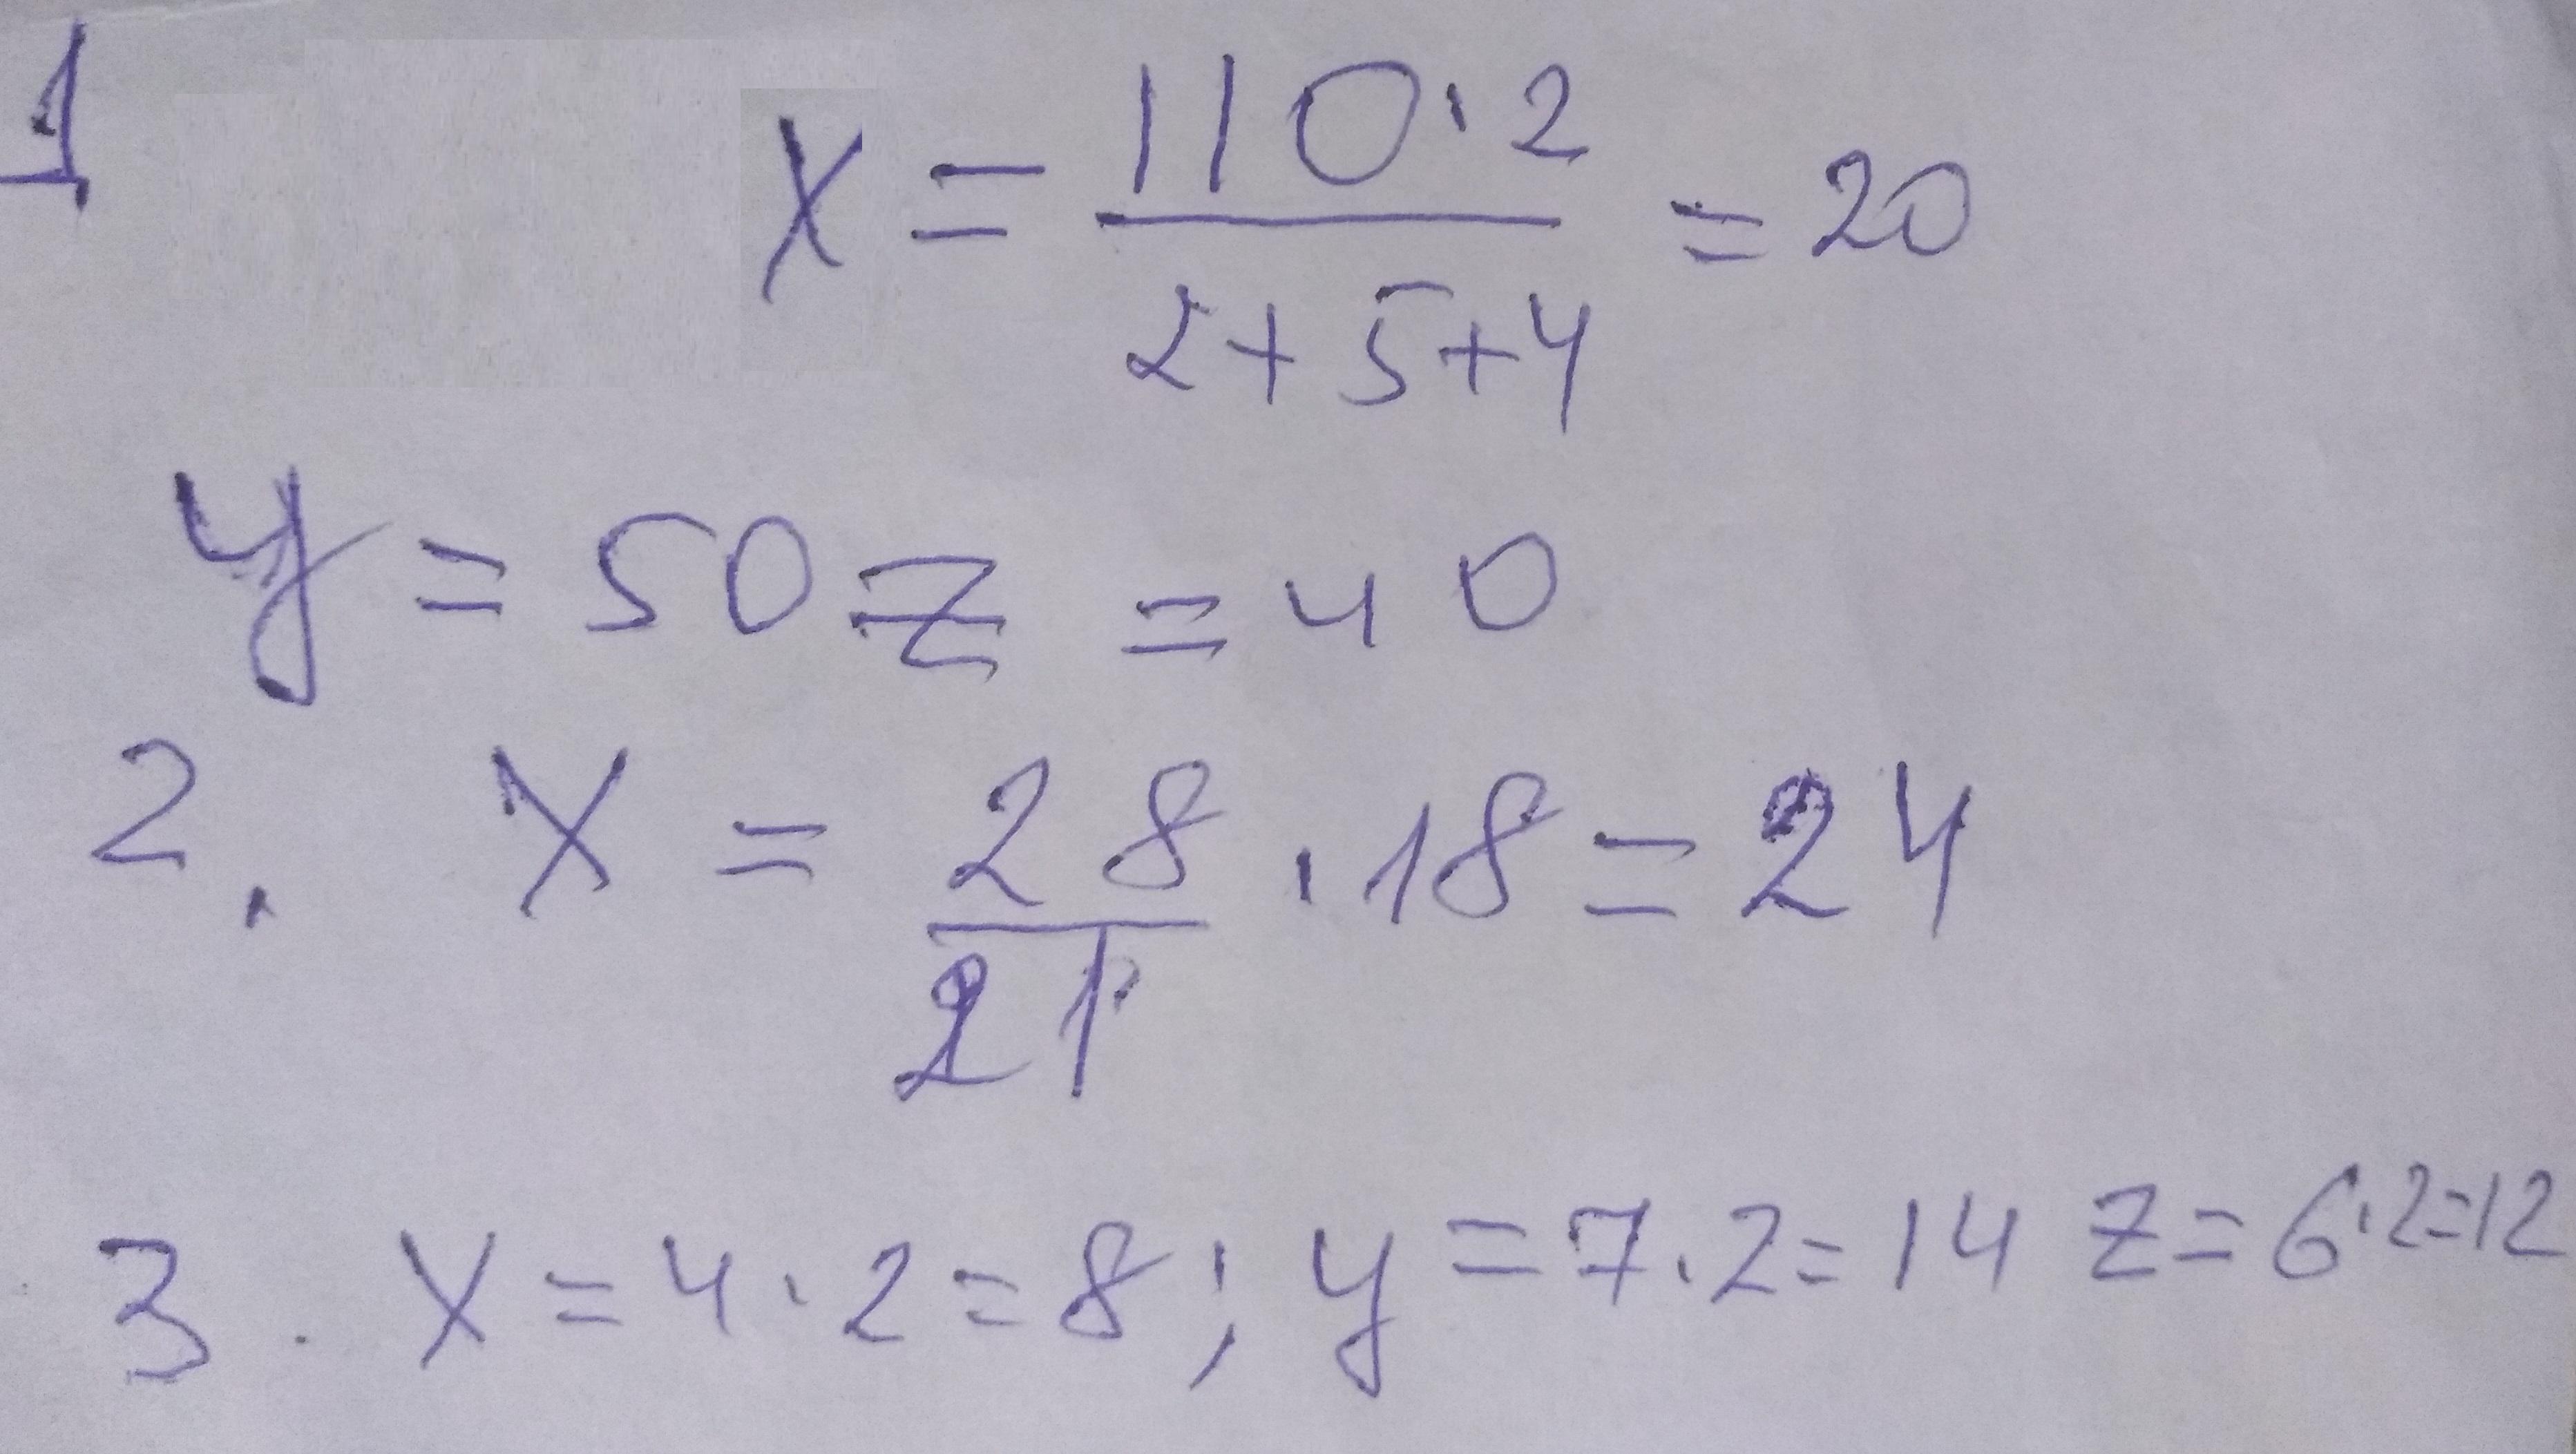 1 x = 110·2 / 2+5+4 = 20
y = 50 z = 40
2. x = 28/21 · 18 = 24
3. x = 4·2 = 8; y = 7·2 = 14 z = 6·2 = 12